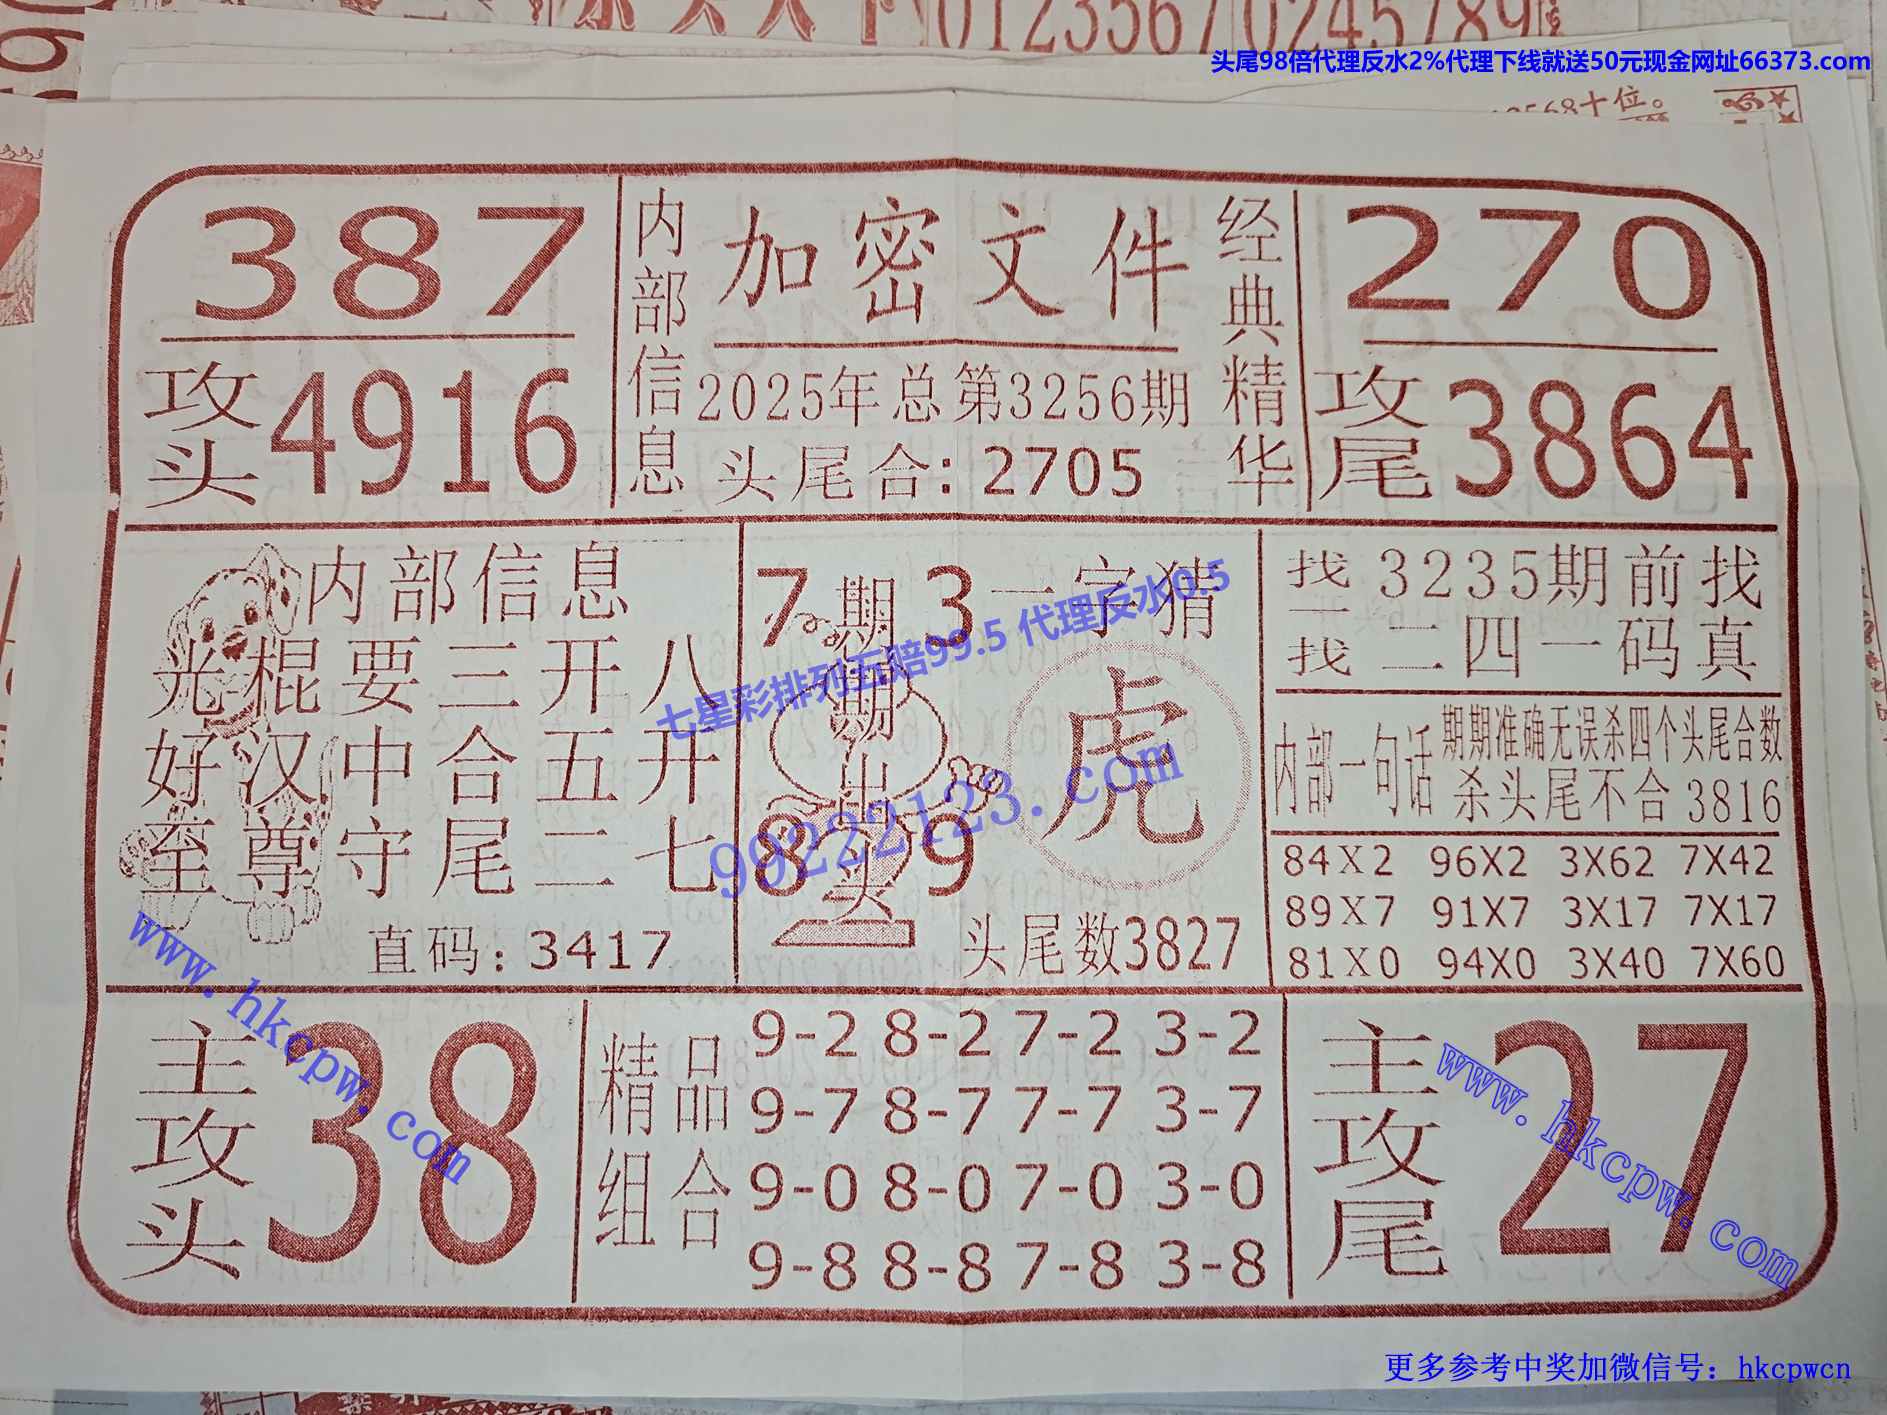 0123567
0245789
头尾98倍代理反水2%代理下线就送50元现金网址66373.com
十位。
387
攻头4916
内部信息
加密文件
2025年总第3256期
头尾合:2705
经典精华
270
攻尾3864
内部信息
光棍要三开八
好汉中合五开
至尊守尾二七
直码:3417
7 3
8 9
期期期出头
一字猜
虎
头尾数3827
七星彩排列五赔99.5 代理反水0.5
99222123.com
找一找
3235期前找
二四一码真
内部一句话
期期准确无误杀四个头尾合数
杀头尾不合3816
84X2 96X2 3X62 7X42
89X7 91X7 3X17 7X17
81X0 94X0 3X40 7X60
www.hkcpw.com
主攻头
38
精品组合
9-2 8-2 7-2 3-2
9-7 8-7 7-7 3-7
9-0 8-0 7-0 3-0
9-8 8-8 7-8 3-8
主攻尾
27
www.hkcpw.com
更多参考中奖加微信号：hkcpwcn